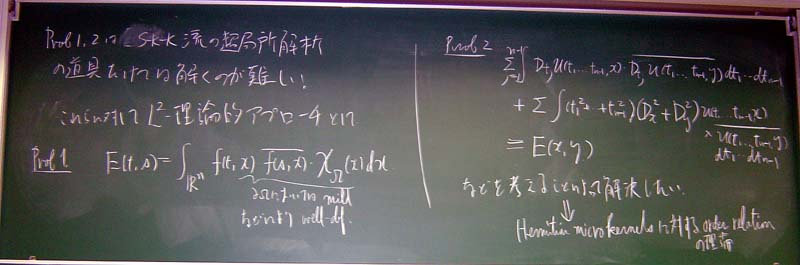 Prob 1, 2 は S-K-K 流の超局所解析
の道具だけでは解くのが難しい!
これに対して L²-理論的アプローチとして
Prob 1 E(t,s) = ∫_{ℝⁿ} f(t,x) \overline{f(s,x)}・χ_Ω(x)dx
∂Ωにおいては mild
などにより well-def.
Prob 2
Σ_{j=1}^{n-1} ∫ D_{t_j}u(t₁…t_{n-1},x)・\overline{D_{t_j}u(t₁…t_{n-1},y)} dt₁…dt_{n-1}
+ Σ∫(t₁²+…+t_{n-1}²)(D_x²+D_y²)u(t₁…t_{n-1},x)
× \overline{u(t₁…t_{n-1},y)}
dt₁…dt_{n-1}
≡ E(x,y)
などを考えることによって解決したい.
⇓
Hermitian microkernels に対する order relation
の理論